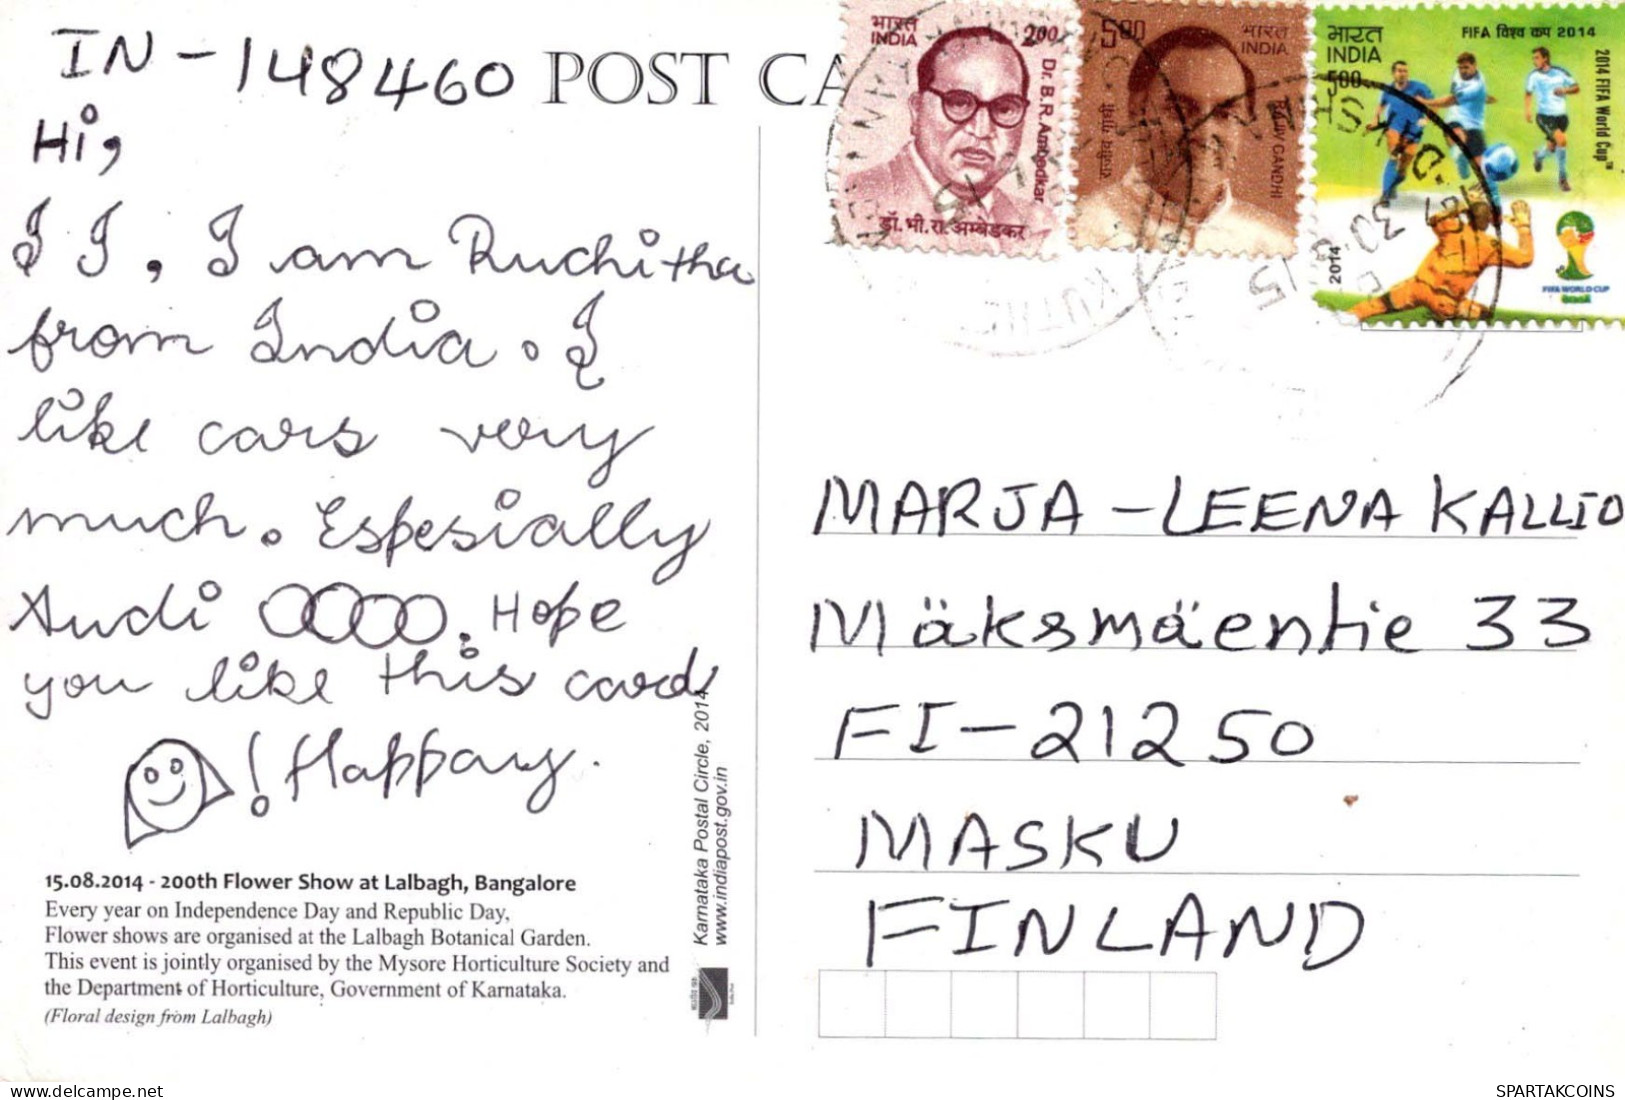 IN-148460
POST CA
Hi,
I I, I am Ruchitha
from India. I
like cars very
much. Espesially
Audi . Hope
you like this card
! Happay.
15.08.2014 - 200th Flower Show at Lalbagh, Bangalore
Every year on Independence Day and Republic Day,
Flower shows are organised at the Lalbagh Botanical Garden.
This event is jointly organised by the Mysore Horticulture Society and
the Department of Horticulture, Government of Karnataka.
(Floral design from Lalbagh)
Karnataka Postal Circle, 2014
www.indiapost.gov.in
भारत
INDIA
200
Dr. B. R. Ambedkar
डॉ. भी. रा. अम्बेडकर
500
भारत
INDIA
RAJIV GANDHI
राजीव गांधी
भारत
INDIA
500
FIFA विश्व कप 2014
2014 FIFA World Cup™
2014
FIFA WORLD CUP
MARJA-LEENA KALLIO
Mäksmäentie 33
FI-21250
MASKU
FINLAND
www.delcampe.net
SPARTAKCOINS